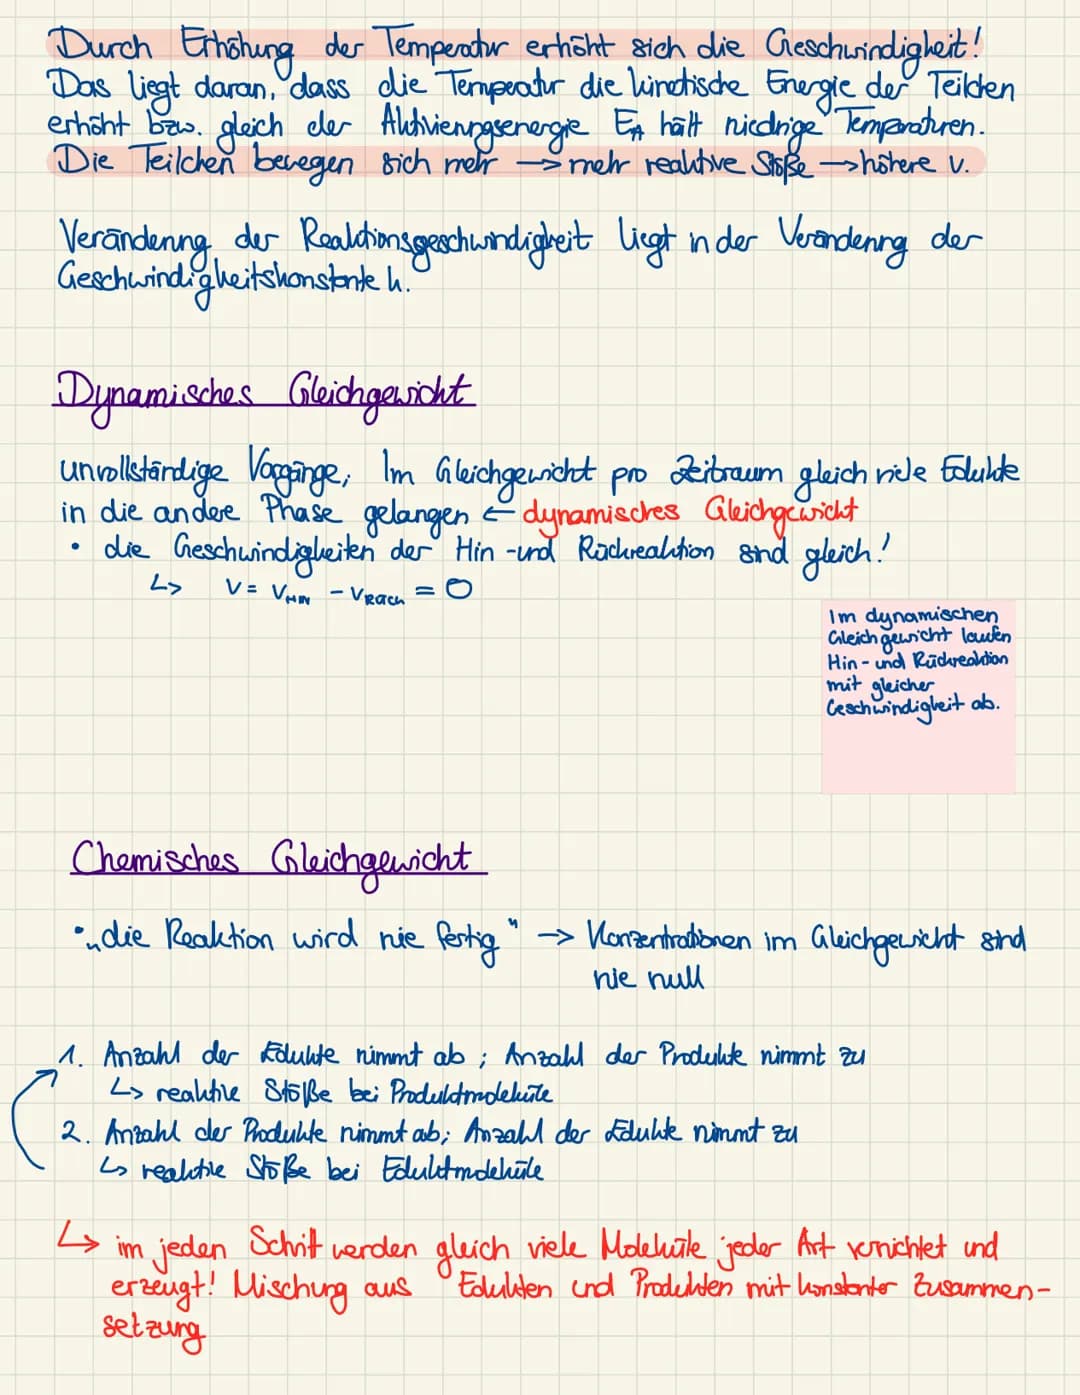 Durch Erhöhung der Temperatur erhöht sich die Geschwindigkeit!
Das liegt daran, dass die Temperatur die kinetische Energie der Teilchen
erhöht bzw. gleich der Aktivierungsenergie EA hält niedrige Temperaturen.
Die Teilchen bewegen sich mehr → mehr reaktive Stöße → höhere v.
Veränderung der Reaktionsgeschwindigkeit liegt in der Veränderung der
Geschwindigkeitskonstante k.
Dynamisches Gleichgewicht
unvollständige Vorgänge; Im Gleichgewicht pro Zeitraum gleich viele Edukte
in die andere Phase gelangen ← dynamisches Gleichgewicht
• die Geschwindigkeiten der Hin-und Rückreaktion sind gleich!
↳ v = vHIN - vRÜCK = 0
Im dynamischen
Gleichgewicht laufen
Hin- und Rückreaktion
mit gleicher
Geschwindigkeit ab.
Chemisches Gleichgewicht
• „die Reaktion wird nie fertig" → Konzentrationen im Gleichgewicht sind
nie null
1. Anzahl der Edukte nimmt ab; Anzahl der Produkte nimmt zu
↳ reaktive Stöße bei Produktmoleküle
2. Anzahl der Produkte nimmt ab; Anzahl der Edukte nimmt zu
↳ reaktive Stöße bei Eduktmoleküle
↳ im jeden Schritt werden gleich viele Moleküle jeder Art vernichtet und
erzeugt! Mischung aus Edukten und Produkten mit konstanter Zusammen-
setzung